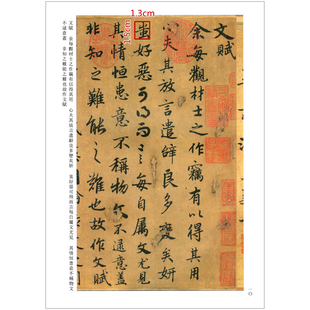 1.3cm
1.3cm
文賦
余每觀材士之作竊有以得其用
心夫其放言遣辭良多變矣妍
蚩好惡可得而言每自属文尤見
其情恒患意不稱物文不逮意盖
非知之難能之難也故作文賦
文賦 余每觀材士之作竊有以得其用 心夫其放言遣辭良多變矣妍 蚩好惡可得而言每自屬文尤見 其情恒患意不稱物文
不逮意蓋 非知之難能之難也故作文賦
一〇